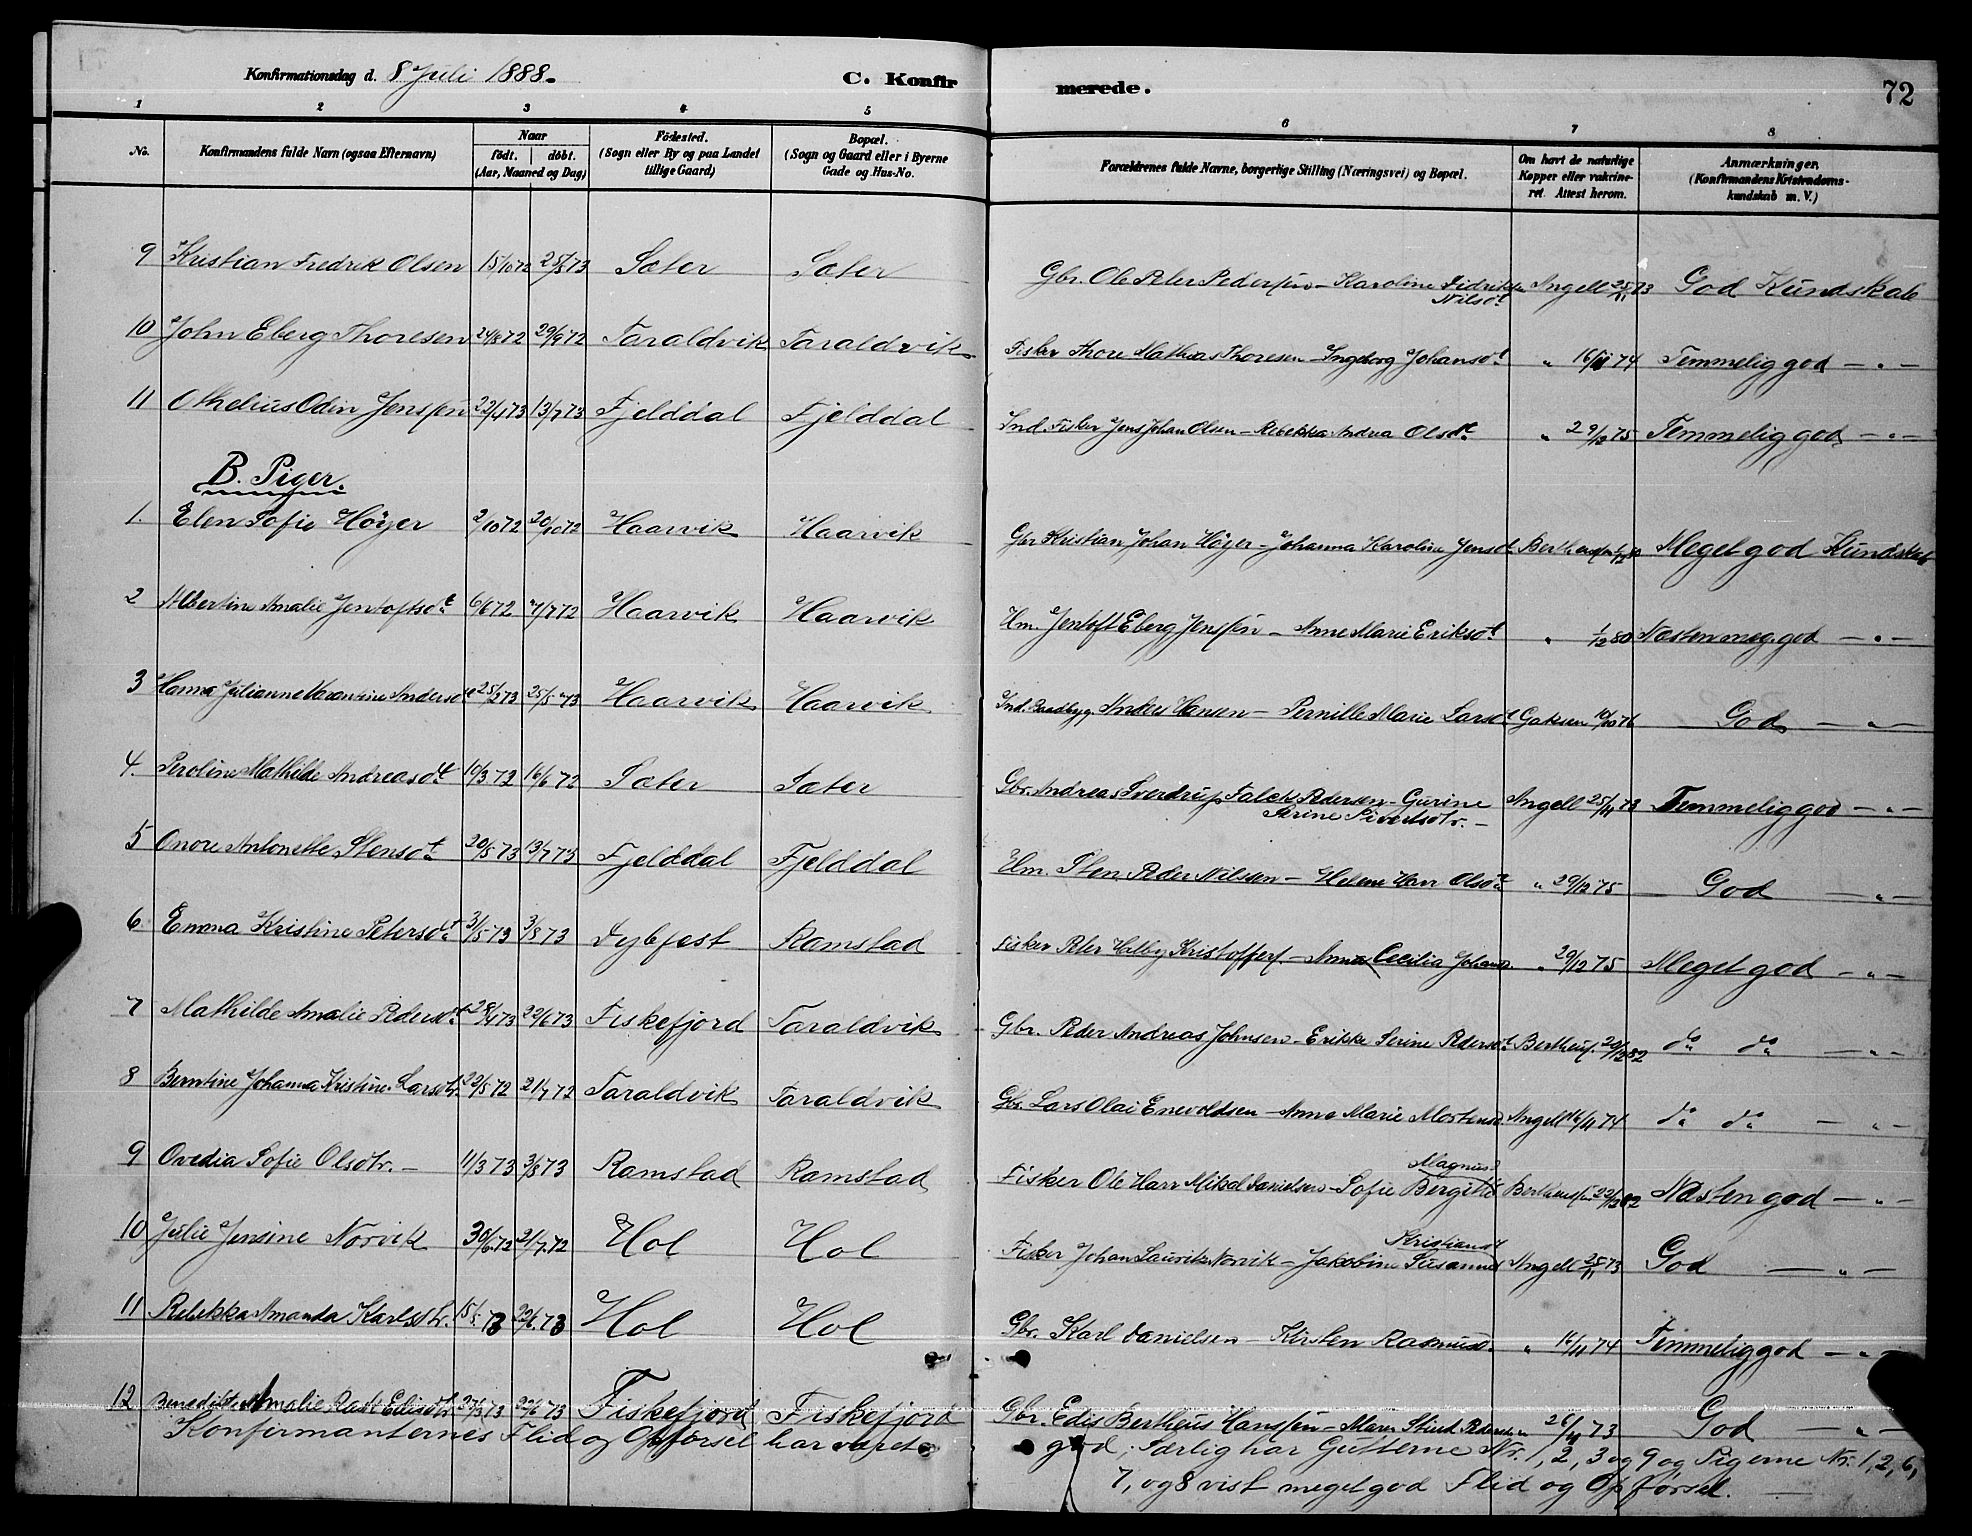 Konfirmationsdag d. 8 Juli 1888.
C. Konfirmerede.
72
1 2 3 4 5 6 7 8
No.
Konfirmandens fulde Navn (ogsaa Efternavn)
Naar
födt. döbt.
(Aar, Maaned og Dag)
Födested.
(Sogn eller By og paa Landet
tillige Gaard)
Bopæl.
(Sogn og Gaard eller i Byerne
Gade og Hus-No.
Forældrenes fulde Navne, borgerlige Stilling (Næringsvei) og Bopæl.
Om havt de naturlige
Kopper eller vakcineret. Attest herom.
Anmærkninger,
(Konfirmandens Kristendomskundskab m. V.)
9 Kristian Fredrik Olsen 15/10 72 25/5 73 Sæter Sæter Gbr. Ole Peter Pedersen - Karoline Fidrikke Nilsdt. Angell 25/11 73 God Kundskab
10 John Eberg Thoresen 24/8 72 29/9 72 Taraldvik Taraldvik Fisker Thore Mathias Thoresen - Ingeborg Johansdt. " 16/11 74 Temmelig god — " —
11 Othelius Odin Jensen 22/4 73 13/7 73 Fjelddal Fjelddal Ind. Fisker Jens Johan Olsen - Rebekka Andrea Olsdt. " 29/12 75 Temmelig god — " —
B. Piger.
1. Elen Sofie Höyer 2/10 72 20/10 72 Haarvik Haarvik Gbr Kristian Johan Höyer - Johanna Karoline Jensdt. Meget god Kundskab
2 Albertine Amalie Jentoftsdt. 6/6 72 7/7 72 Haarvik Haarvik Hm. Jentoft Eberg Jensen - Anne Marie Eriksdt. " 1/12 80 Næsten meg. god — " —
3 Hanna Julianne Anders 25/2 73 25/5 73 Haarvik Haarvik Ind. Baadbyg. Anders Hansen - Pernille Marie Larsdt. 10/10 76 God — " —
4. Peroline Mathilde Andreasdt. 10/3 72 16/6 72 Sæter Sæter Gbr. Andreas Sverdrup Falck Pedersen - Gurine Serine Sivertsdtr. Angell 25/11 73 Temmelig god — " —
5 Onore Antonette Stensdt. 20/5 73 13/7 73 Fjelddal Fjelddal Hm. Sten Peder Nilssen - Helene Harr Olsdt. " 29/12 75 God — " —
6. Emma Kristine Petersdt. 31/5 73 3/8 73 Dybfest Ramstad Fisker Peter Halby Kristoffers. - Anna Cecilia Johans. " 29/12 75 Meget god — " —
7 Mathilde Amalie Pedersdt. 28/4 73 22/6 73 Fiskefjord Taraldvik Gbr. Peder Andreas Johnsen - Erikke Serine Pedersdt. Bertheus. 20/12 82 do do — " —
8 Berntine Johanna Kristine Larsdtr. 22/5 72 21/7 72 Taraldvik Taraldvik Gbr Lars Olai Enevoldsen - Anne Marie Mortensd. Angell 16/11 74 do do — " —
9 Ovedia Sofie Olsdtr. 11/3 73 3/8 73 Ramstad Ramstad Fisker Ole Harr Mikal Danielsen - Sofie Bergitte Magnusd. 22/12 82 Næsten god — " —
10 Julie Jensine Norvik 30/6 72 21/7 72 Hol Hol Fisker Johan Lauritz Norvik - Jakobine Susanne Kristiansdt. Angell 25/11 73 God — " —
11 Rebekka Amanda Karlsdtr. 15/5 73 22/6 73 Hol Hol Gbr. Karl Danielsen - Kirsten Rasmusd. " 16/11 74 Temmelig god — " —
12 Benedikte Amalie Edisdtr 27/3 73 22/6 73 Fiskefjord Fiskefjord Gbr. Edis Bertheus Hanssen - Maren 26/11 73 God — " —
Konfirmanternes Flid og Opförsel har været
god. Særlig har Gutterne Nr. 1, 2, 3 og 9 og Pigerne Nr. 1, 2, 6,
7, og 8 vist meget god Flid og Opförsel.